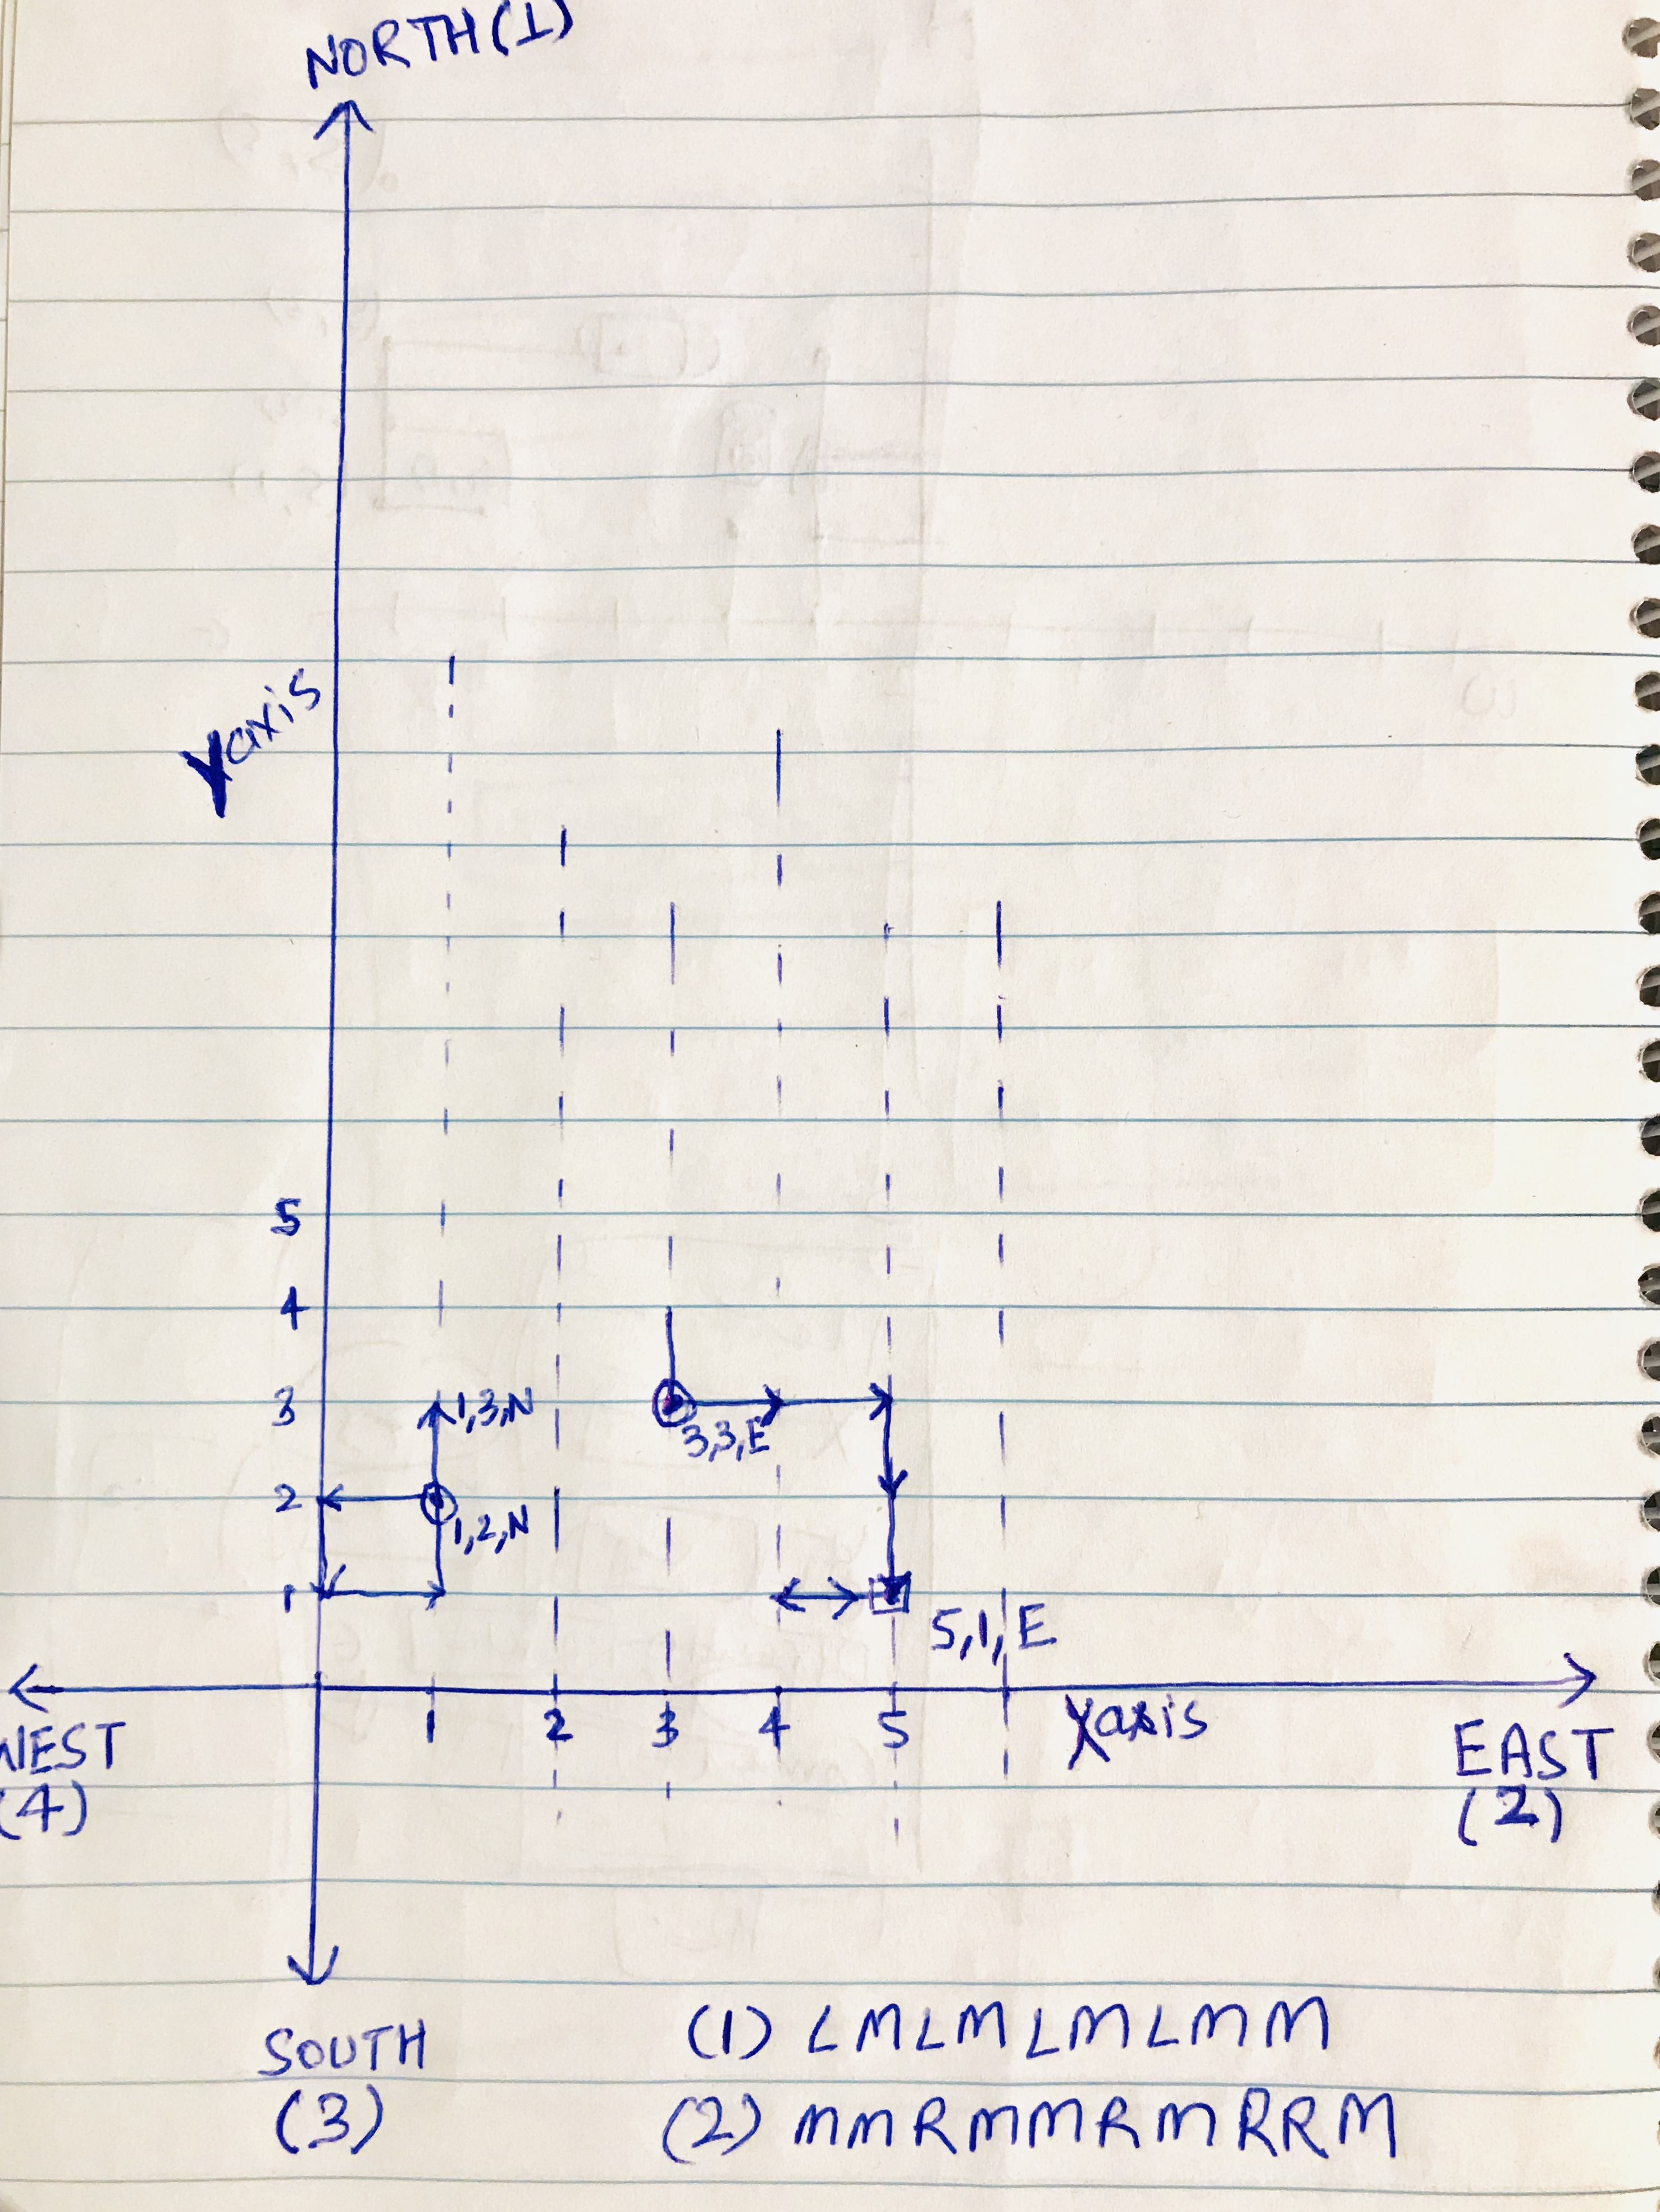 NORTH(1)
Yaxis
5
4
3
1,3,N
3,3,E
2
1,2,N
1
5,1,E
1 2 3 4 5
Xaxis
WEST
(4)
EAST
(2)
SOUTH
(3)
(1) LMLMLMLMM
(2) MMRMMRMRRM